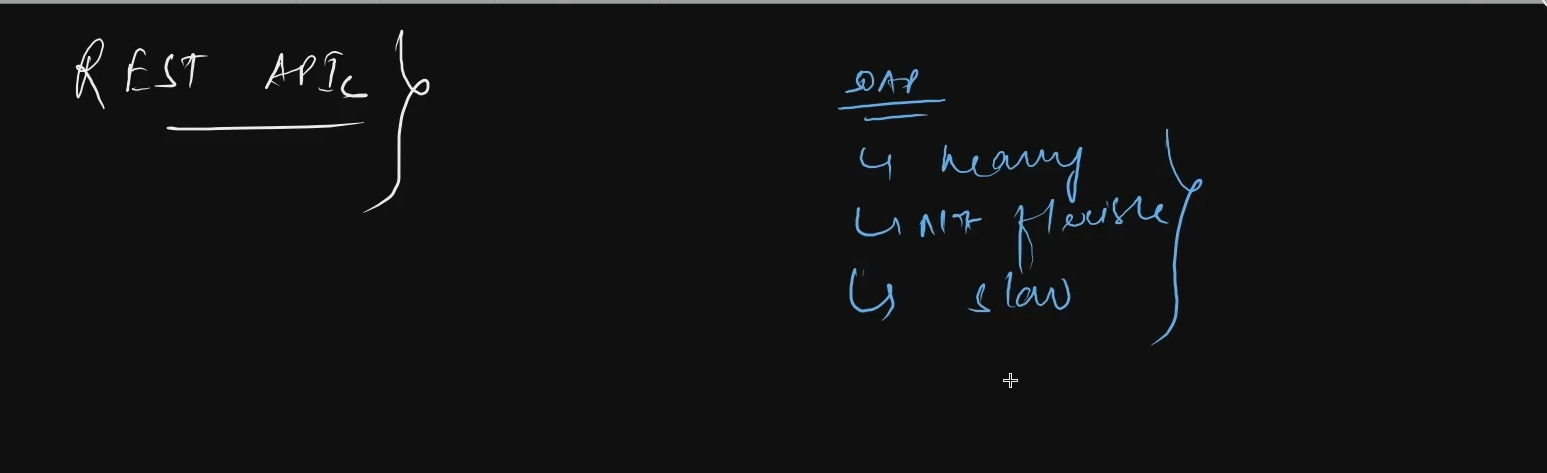 REST APIs
SOAP
↳ heavy
↳ Not flexible
↳ slow